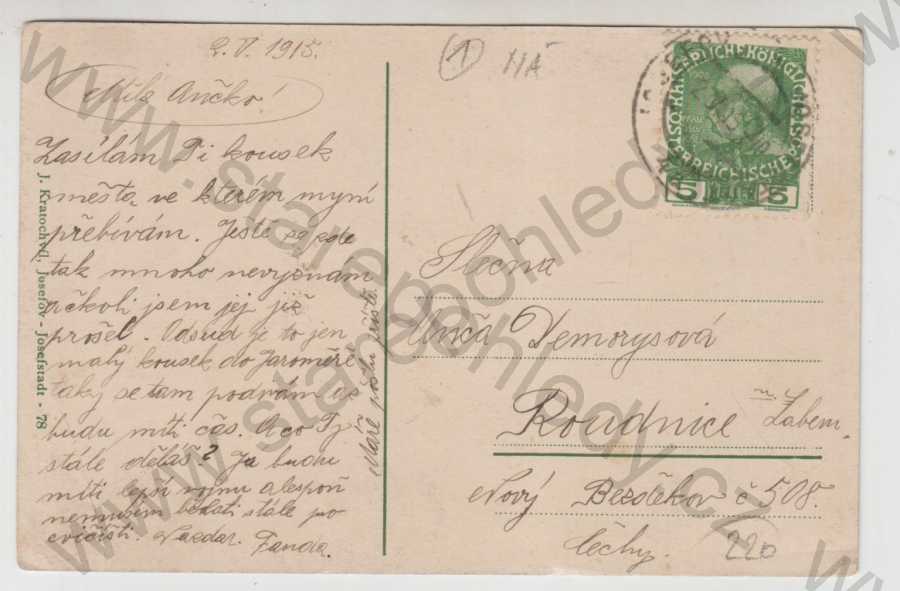 2. V. 1915.
Milá Aučko!
Zasílám Ti kousek
města, ve kterém nyní
přebývám. Ještě se zde
tak mnoho nevyznám
ačkoli jsem jej již
prošel. Odsud je to jen
malý kousek do Jaroměře
taky se tam podívám až
budu míti čas. A co Ty
stále děláš? Ja budu
míti lepší vojnu alespoň
nemusím běhati stále po
cvičišti. Nazdar. Fanda.
příště.
J. Kratochvíl, Josefov - Josefstadt - 78
1
NÁ
KAISERLICHE KÖNIGLICHE ÖSTERREICHISCHE POST
5 5
Slečna
Anča Demorysová
Roudnice n. Labem.
Nový Bezděkov č 508.
Čechy.
220
www.starepohledy.cz